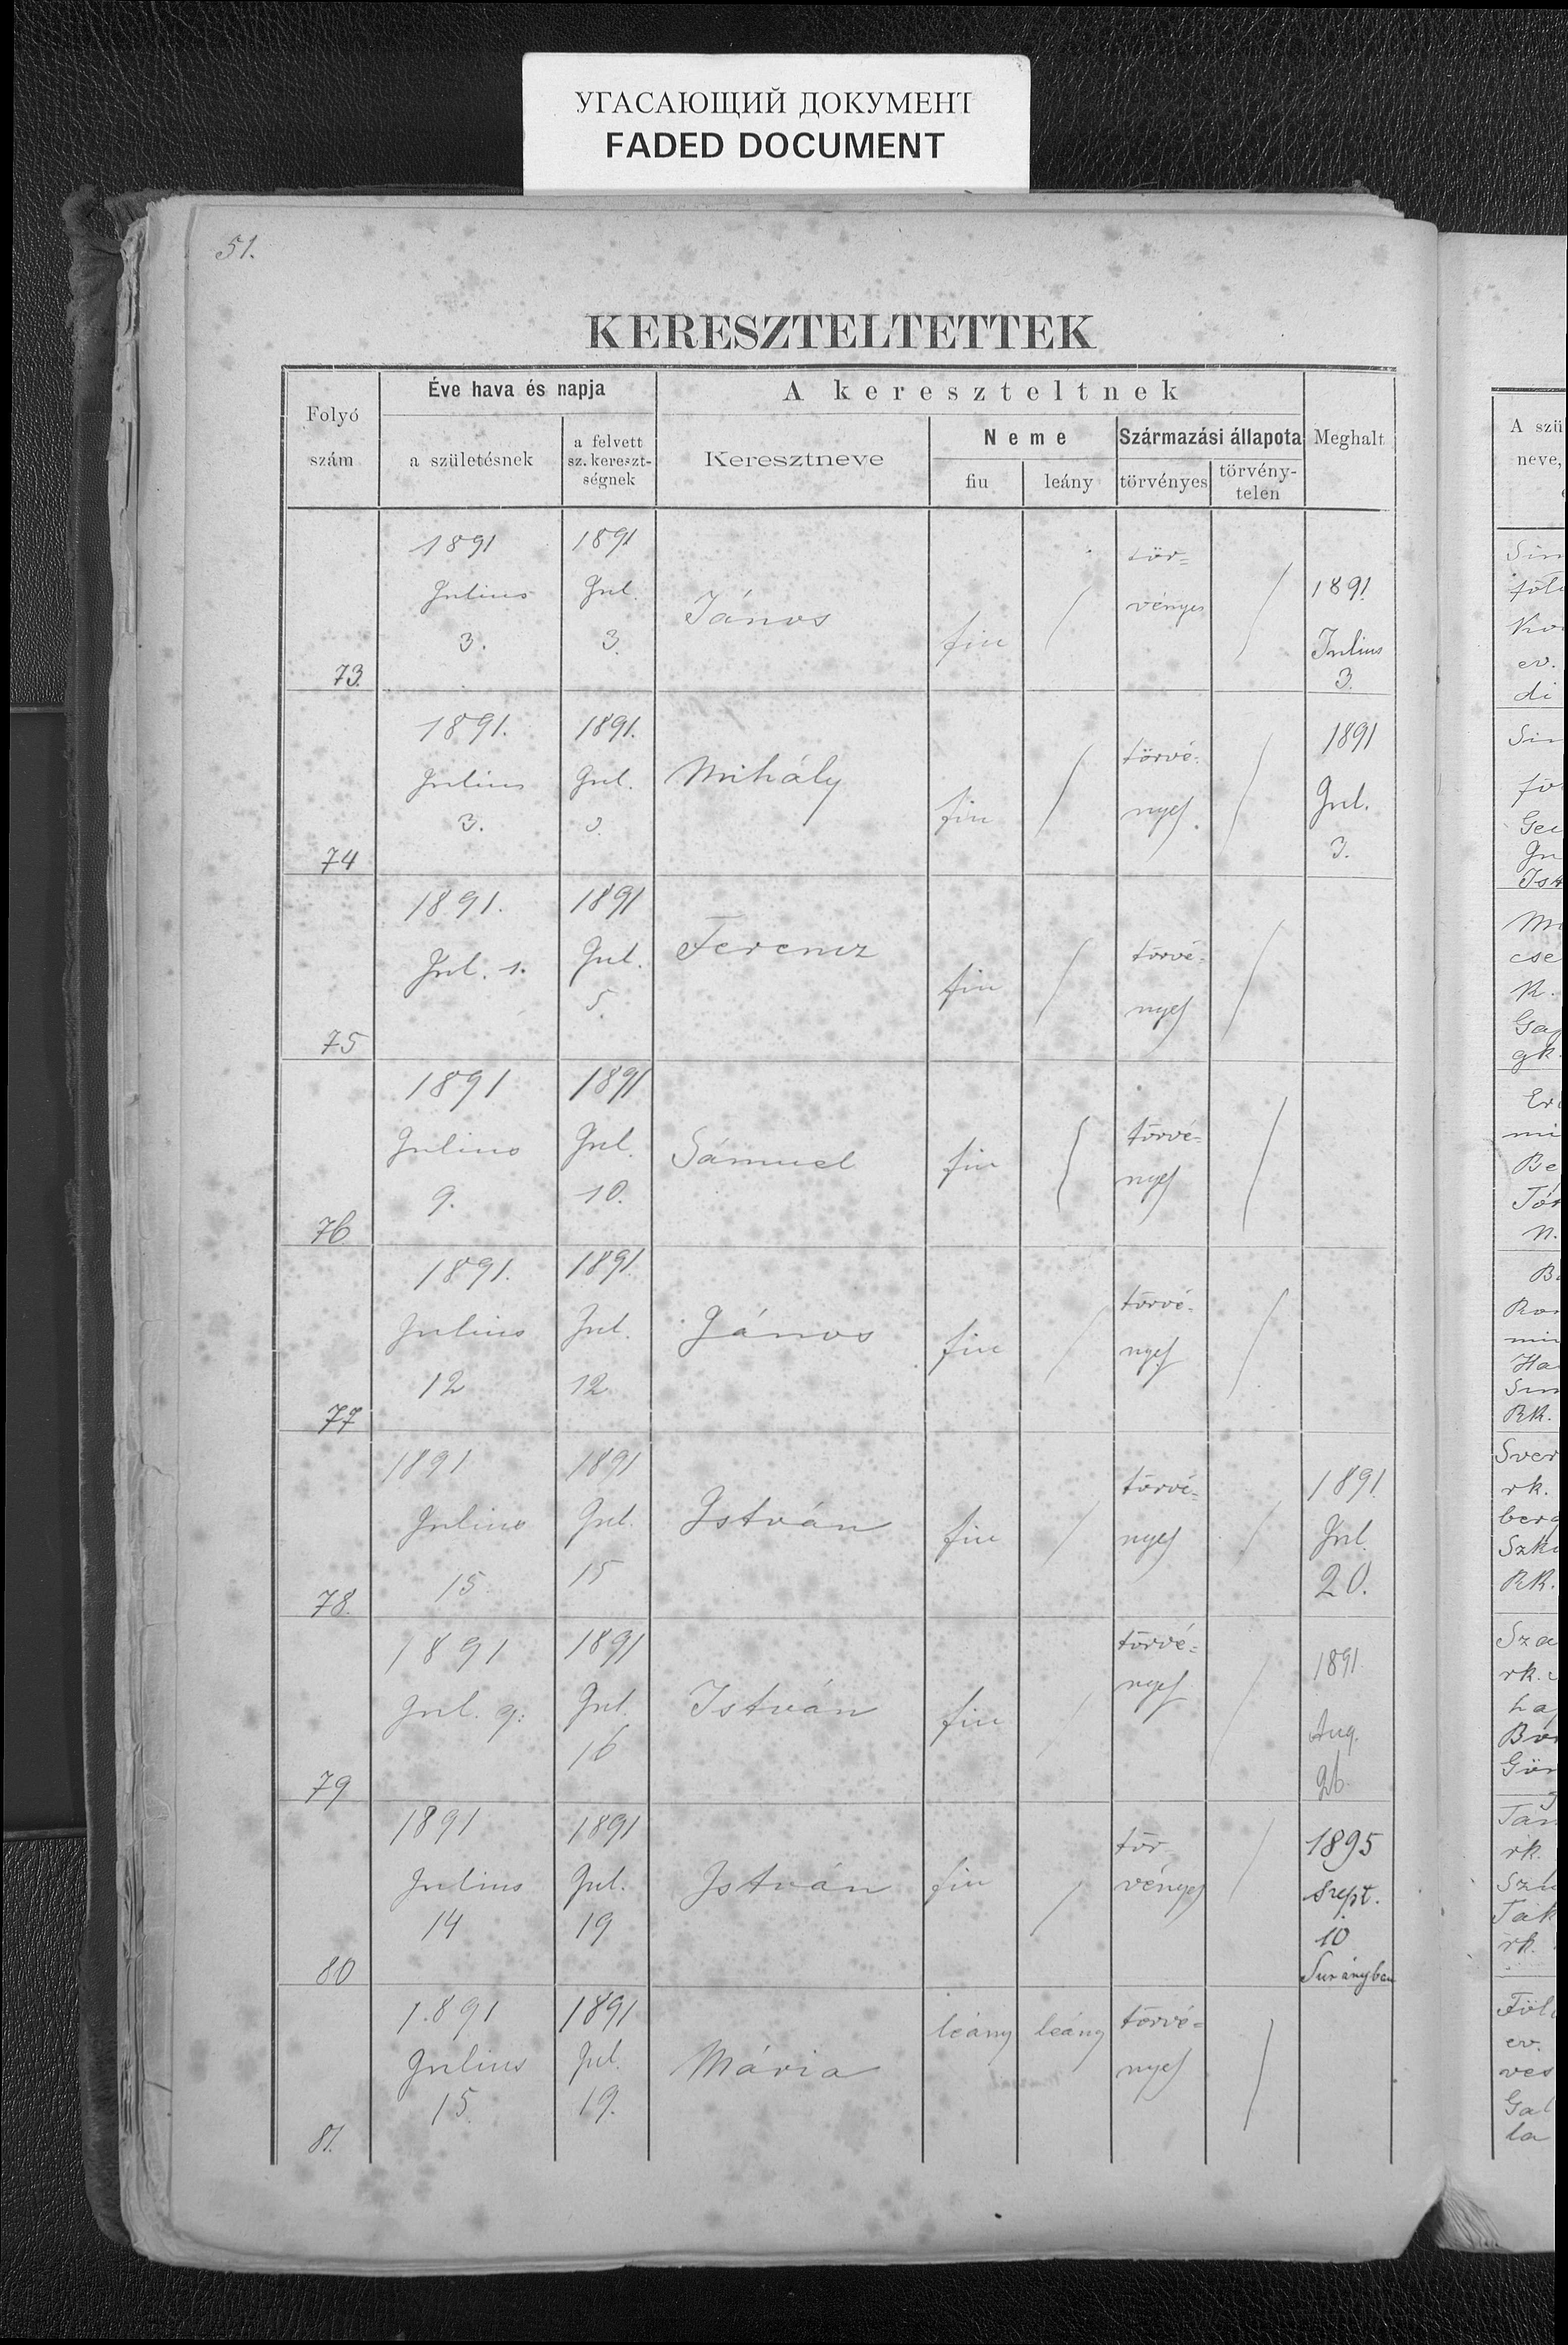 УГАСАЮЩИЙ ДОКУМЕНТ
FADED DOCUMENT
51.
KERESZTELTETTEK
Folyó szám
Éve hava és napja
a születésnek
a felvett sz. kereszt-ségnek
A kereszteltnek
Keresztneve
Neme
fiu
leány
Származási állapota
törvényes
törvény-telen
Meghalt
73.
1891 Julius 3.
1891 Jul. 3.
János
fiu
/
tör=
vényes
/
1891. Julius 3.
74
1891. Julius 3.
1891. Jul. 3.
Mihály
fiu
/
törvé-
nyes.
/
1891 Jul. 3.
75
1891. Jul. 1.
1891 Jul. 5.
Ferencz
fiu
/
törvé-
nyes
/
76
1891 Julius 9.
1891 Jul. 10.
Sámuel
fiu
/
törvé-
nyes
/
77
1891. Julius 12
1891. Jul. 12
János
fiu
/
törvé-
nyes
/
78.
1891 Julius 15
1891 Jul. 15
István
fiu
/
törvé=
nyes
/
1891. Jul. 20.
79
1891 Jul. 9.
1891 Jul. 16
István
fiu
/
törvé=
nyes
/
1891. Aug. 26.
80
1891 Julius 14
1891 Jul. 19
István
fiu
/
tör-
vényes
/
1895 Szept. 10 Surányban
81.
1891 Julius 15.
1891 Jul. 19.
Mária
leány
leány
törvé=
nyes
/
A szü
neve,